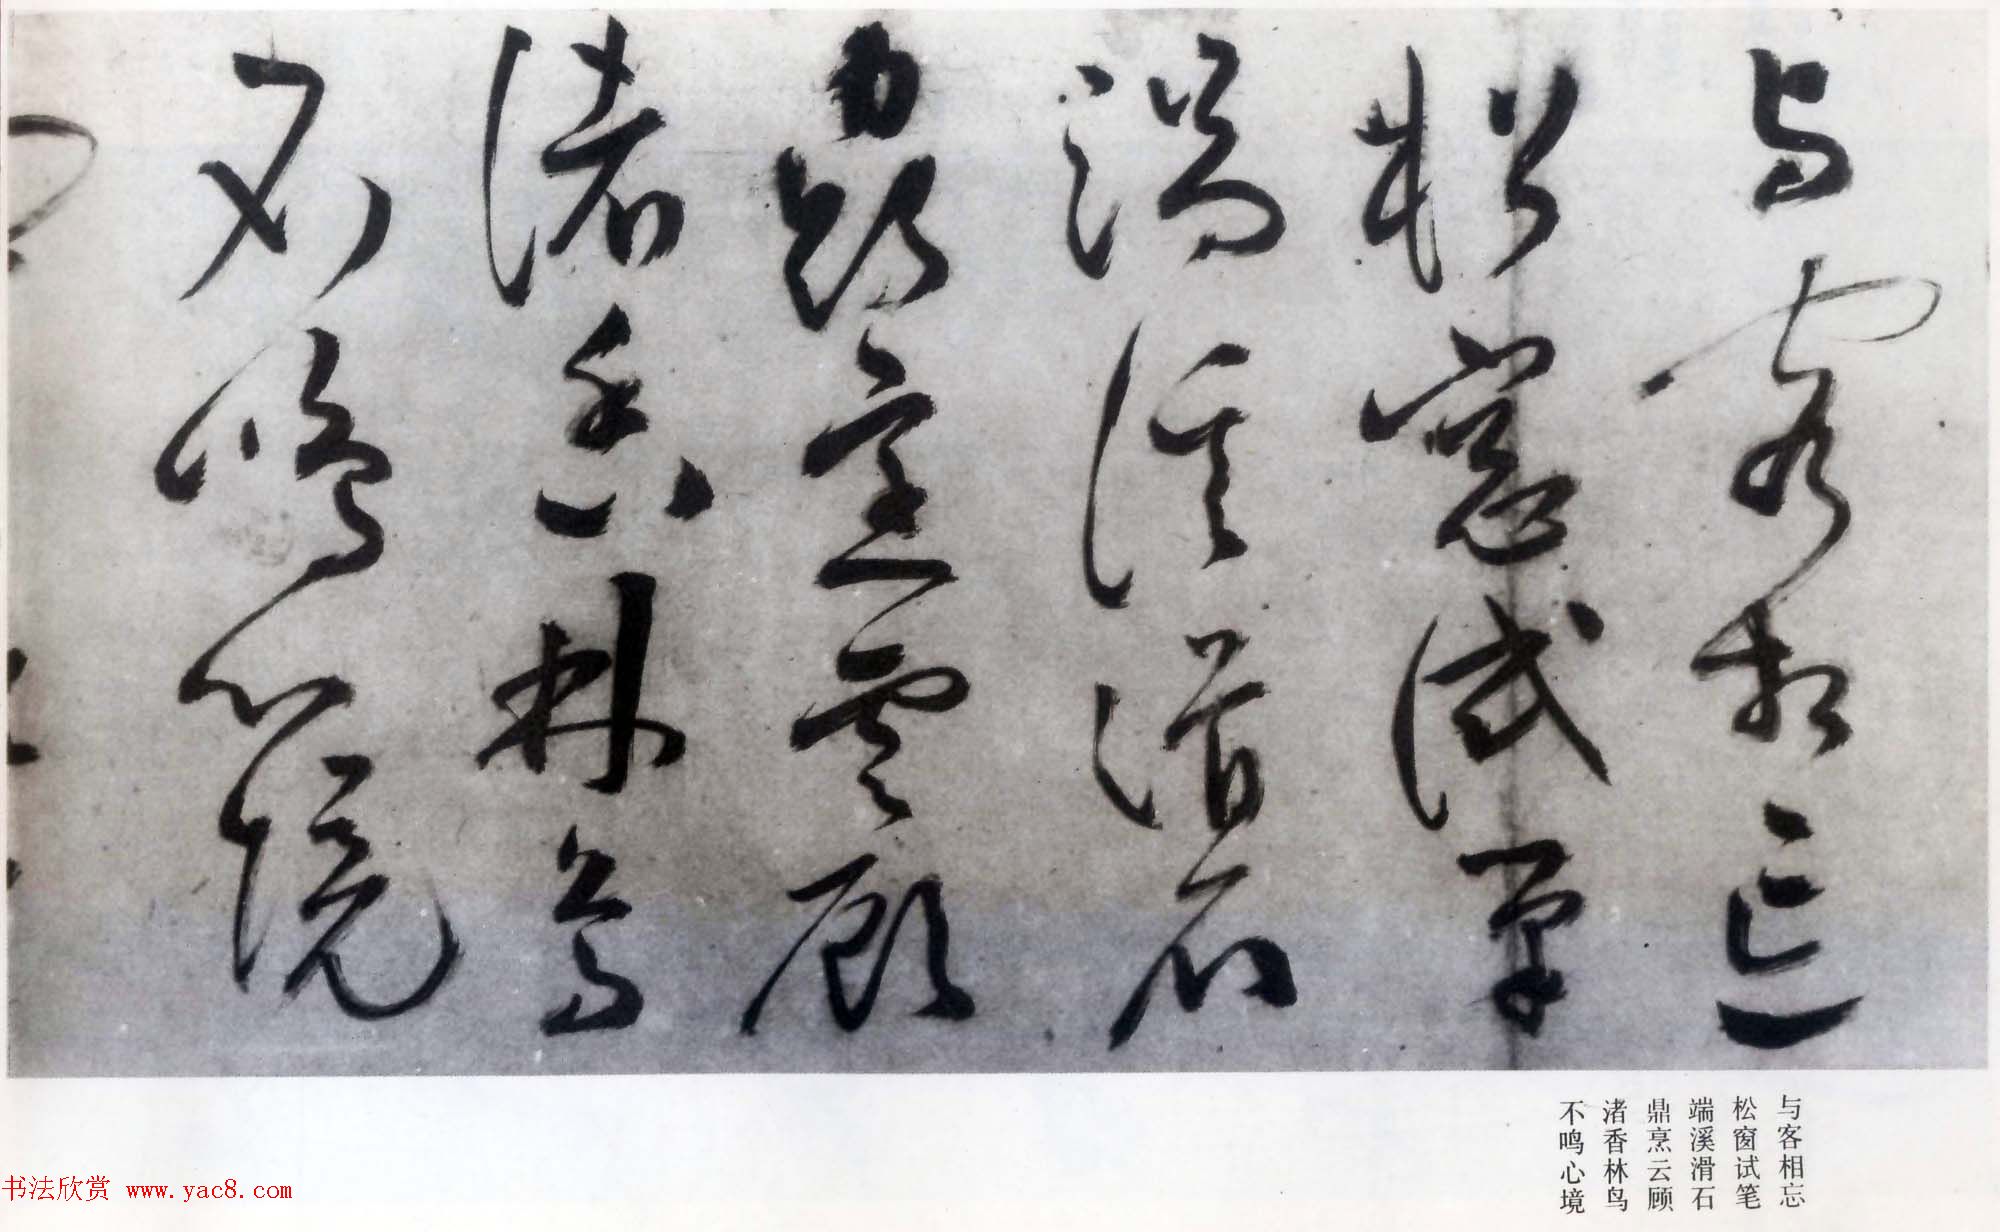 与客相忘
松窗试笔
端溪滑石
鼎烹云顾
渚香林鸟
不鸣心境
与客相忘
松窗试笔
端溪滑石
鼎烹云顾
渚香林鸟
不鸣心境
书法欣赏 www.yac8.com